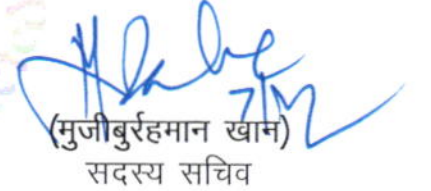 7/12
(मुजीबुर्रहमान खान)
सदस्य सचिव